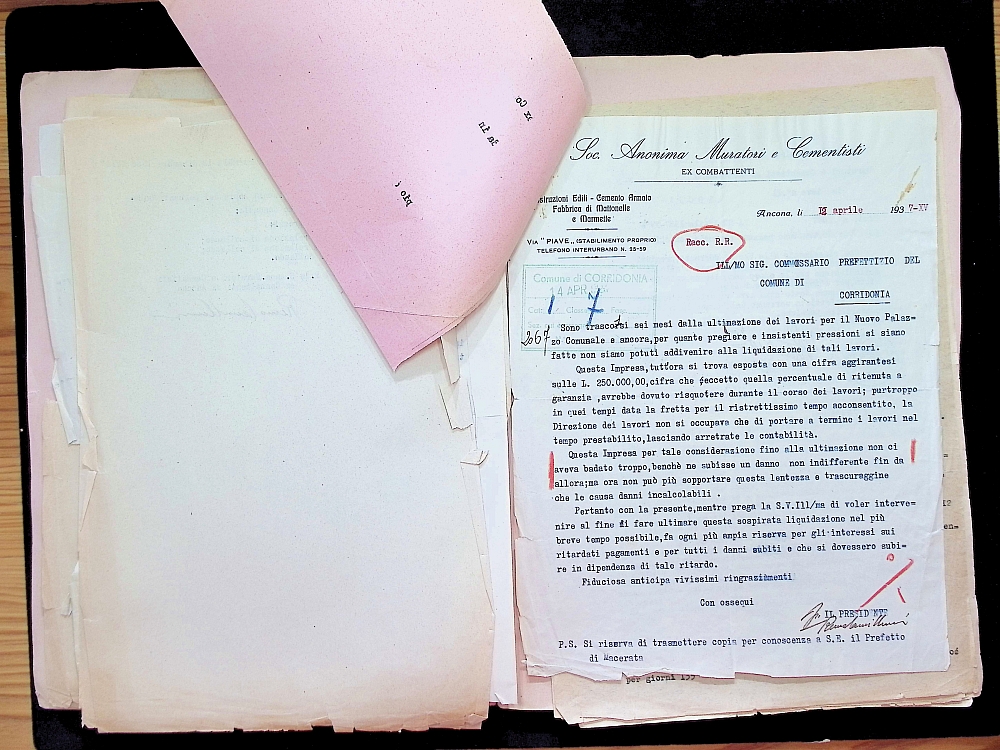 Soc. Anonima Muratori e Cementisti
EX COMBATTENTI
struzioni Edili - Cemento Armato
Fabbrica di Mattonelle
e Marmette
VIA "PIAVE" (STABILIMENTO PROPRIO)
TELEFONO INTERURBANO N. 35-59
Ancona, li 13 aprile 1937-XV
Racc. R.R.
ILL/MO SIG. COMMISSARIO PREFETTIZIO DEL
COMUNE DI
CORRIDONIA
Comune di CORRIDONIA
14 APR.
1 7
2067
Sono trascorsi sei mesi dalla ultimazione dei lavori per il Nuovo Palaz=
zo Comunale e ancora,per quante pregiere e insistenti pressioni si siano
fatte non siamo potuti addivenire alla liquidazione di tali lavori.
Questa Impresa,tutt'ora si trova esposta con una cifra aggirantesi
sulle L. 250.000,00,cifra che eccetto quella percentuale di ritenuta a
garanzia ,avrebbe dovuto risquotere durante il corso dei lavori; purtroppo
in quei tempi data la fretta per il ristrettissimo tempo acconsentito, la
Direzione dei lavori non si occupava che di portare a termine i lavori nel
tempo prestabilito,lasciando arretrate le contabilità.
Questa Impresa per tale considerazione fino alla ultimazione non ci
aveva badato troppo,benchè ne subisse un danno non indifferente fin da
allora;ma ora non può più sopportare questa lentezza e trascuraggine
che le causa danni incalcolabili .
Pertanto con la presente,mentre prega la S.V.Ill/ma di voler interve=
nire al fine di fare ultimare questa sospirata liquidazione nel più
breve tempo possibile,fa ogni più ampia riserva per gli interessi sui
ritardati pagamenti e per tutti i danni subiti e che si dovessero subi=
re in dipendenza di tale ritardo.
Fiduciosa anticipa vivissimi ringraziamenti
Con ossequi
IL PRESIDENTE
P.S. Si riserva di trasmettere copia per conoscenza a S.E. il Prefetto
di Macerata
per giorni 135